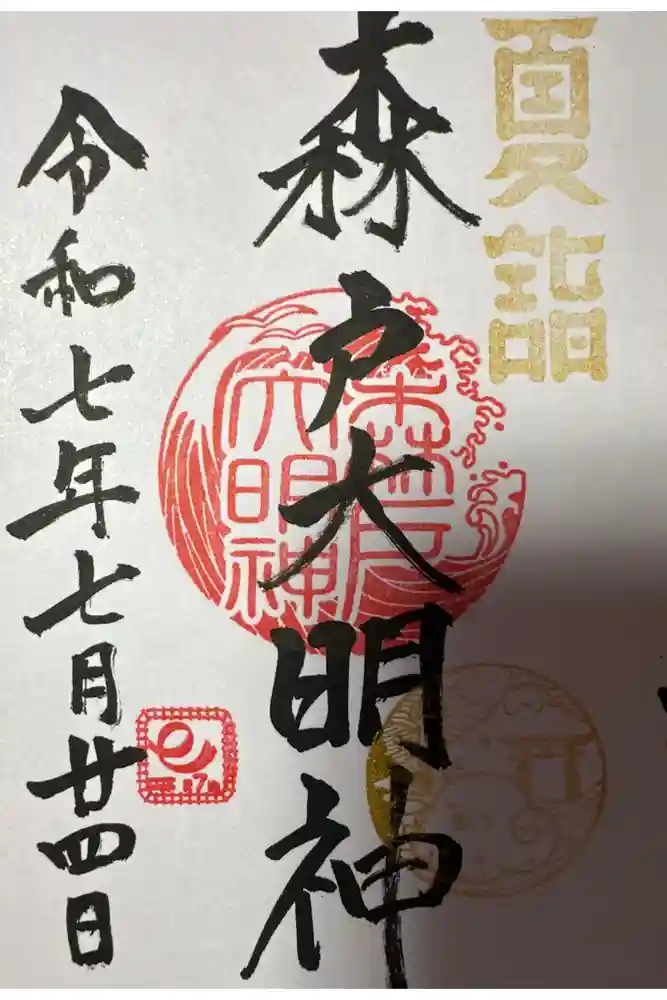 夏詣
森戸大明神
森戸
大明神
令和七年七月廿四日